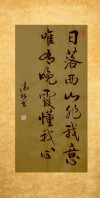 日落西山非我意
唯有晚霞懂我心